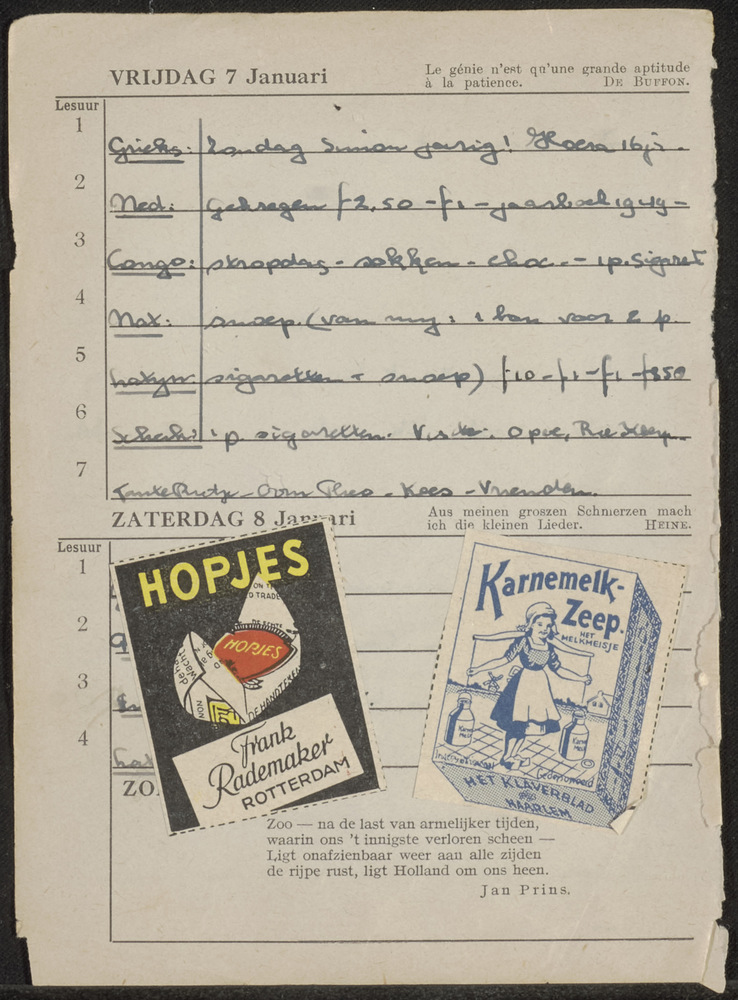 VRIJDAG 7 Januari
Le génie n'est qu'une grande aptitude
à la patience. DE BUFFON.
Lesuur
1 Grieks: Zondag Simon jarig! Hoera 16 j.
2 Ned: Gekregen f 2,50 - f 1 - jaarboek 1949 -
3 Congo: stropdas - sokken - choc. - 1 p. Sigaret
4 Nat: snoep. (van mij: 1 bon voor 2 p.
5 sigaretten + snoep) f 10 - f 1 - f 1 -
6 Scheik: 1 p. sigaretten. Opoe,
7 Tante Oom Theo - Kees - Vrienden.
ZATERDAG 8 Januari
Aus meinen groszen Schmerzen mach
ich die kleinen Lieder. HEINE.
Lesuur
1
2
3
4
HOPJES
HOPJES
Frank
Rademaker
ROTTERDAM
Karnemelk-
Zeep.
HET
MELKMEISJE
Gedeponeerd
HET KLAVERBLAD
HAARLEM
ZO
Zoo — na de last van armelijker tijden,
waarin ons 't innigste verloren scheen —
Ligt onafzienbaar weer aan alle zijden
de rijpe rust, ligt Holland om ons heen.
Jan Prins.